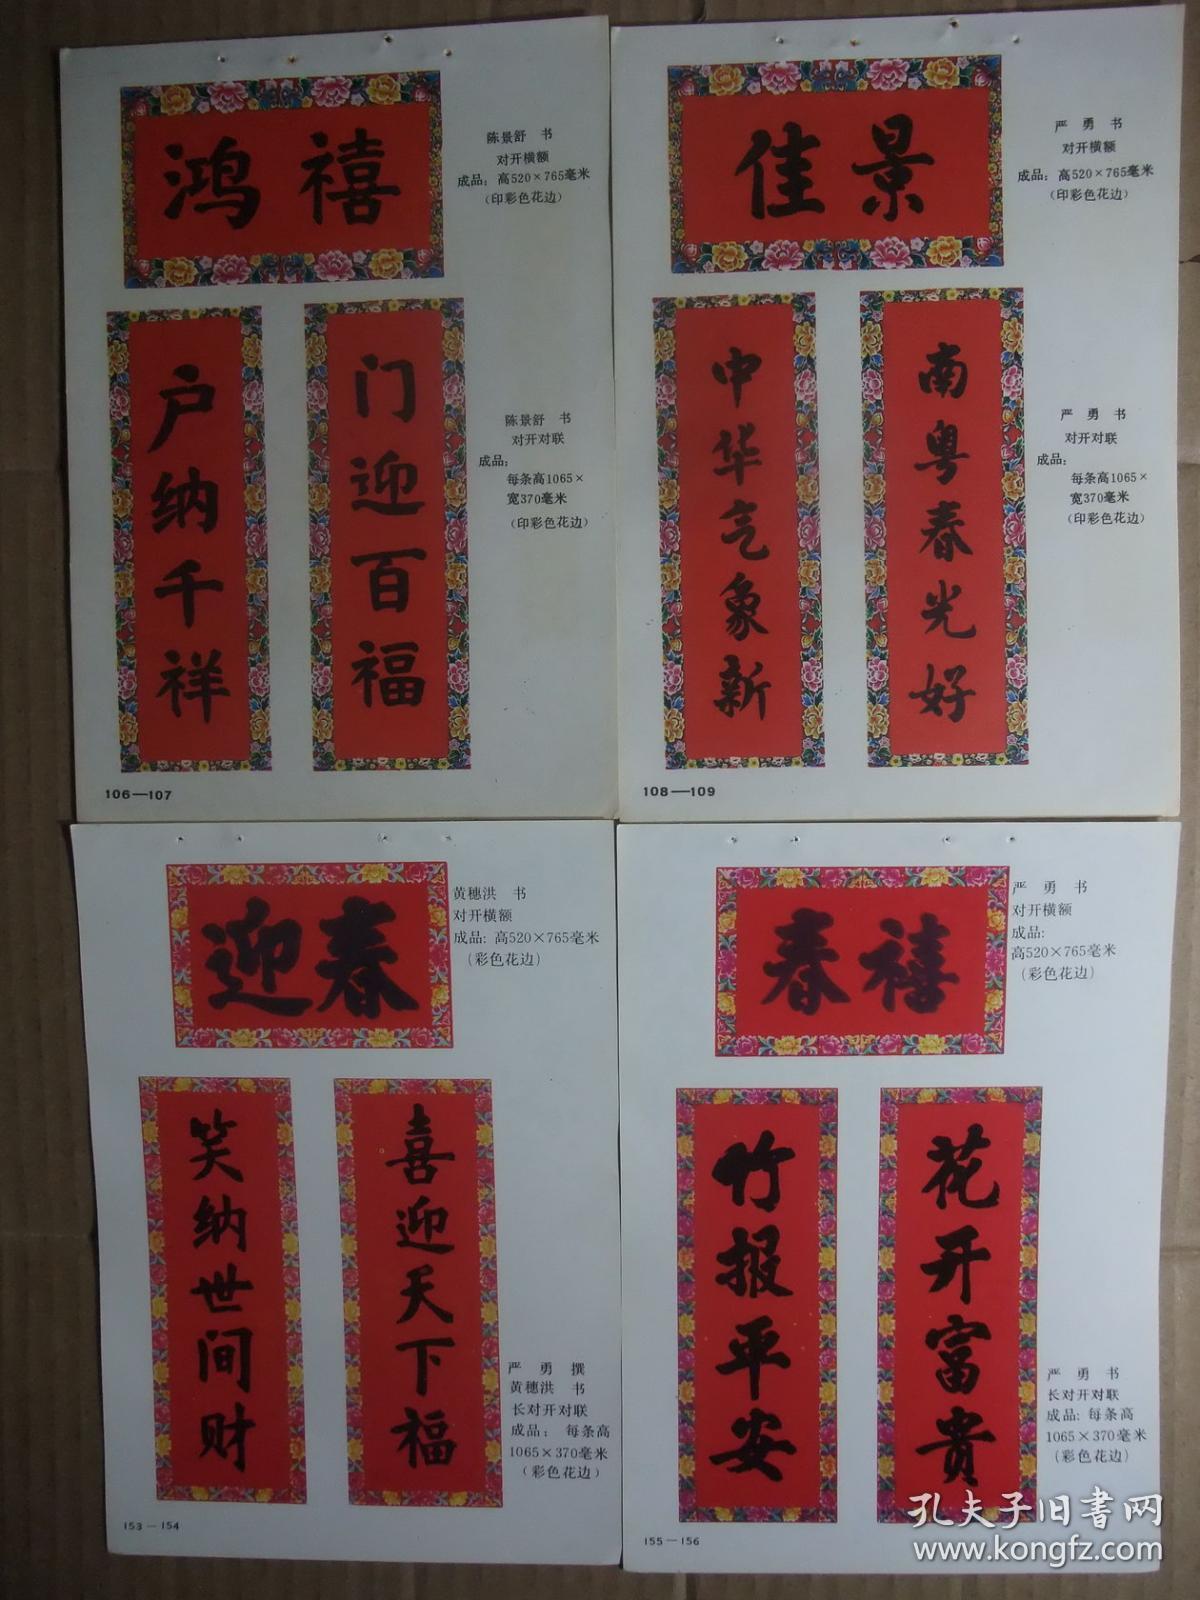 鸿禧
陈景舒 书
对开横额
成品：高520×765毫米
（印彩色花边）
门迎百福
户纳千祥
陈景舒 书
对开对联
成品：
每条高1065×
宽370毫米
（印彩色花边）
106—107
佳景
严勇书
对开横额
成品：高520×765毫米
（印彩色花边）
南粤春光好
中华气象新
严勇书
对开对联
成品：
每条高1065×
宽370毫米
（印彩色花边）
108—109
迎春
黄穗洪 书
对开横额
成品：高520×765毫米
（彩色花边）
喜迎天下福
笑纳世间财
严勇撰
黄穗洪 书
长对开对联
成品：每条高
1065×370毫米
（彩色花边）
153—154
春禧
严勇书
对开横额
成品：
高520×765毫米
（彩色花边）
花开富贵
竹报平安
严勇书
长对开对联
成品：每条高
1065×370毫米
（彩色花边）
155—156
孔夫子旧书网
www.kongfz.com